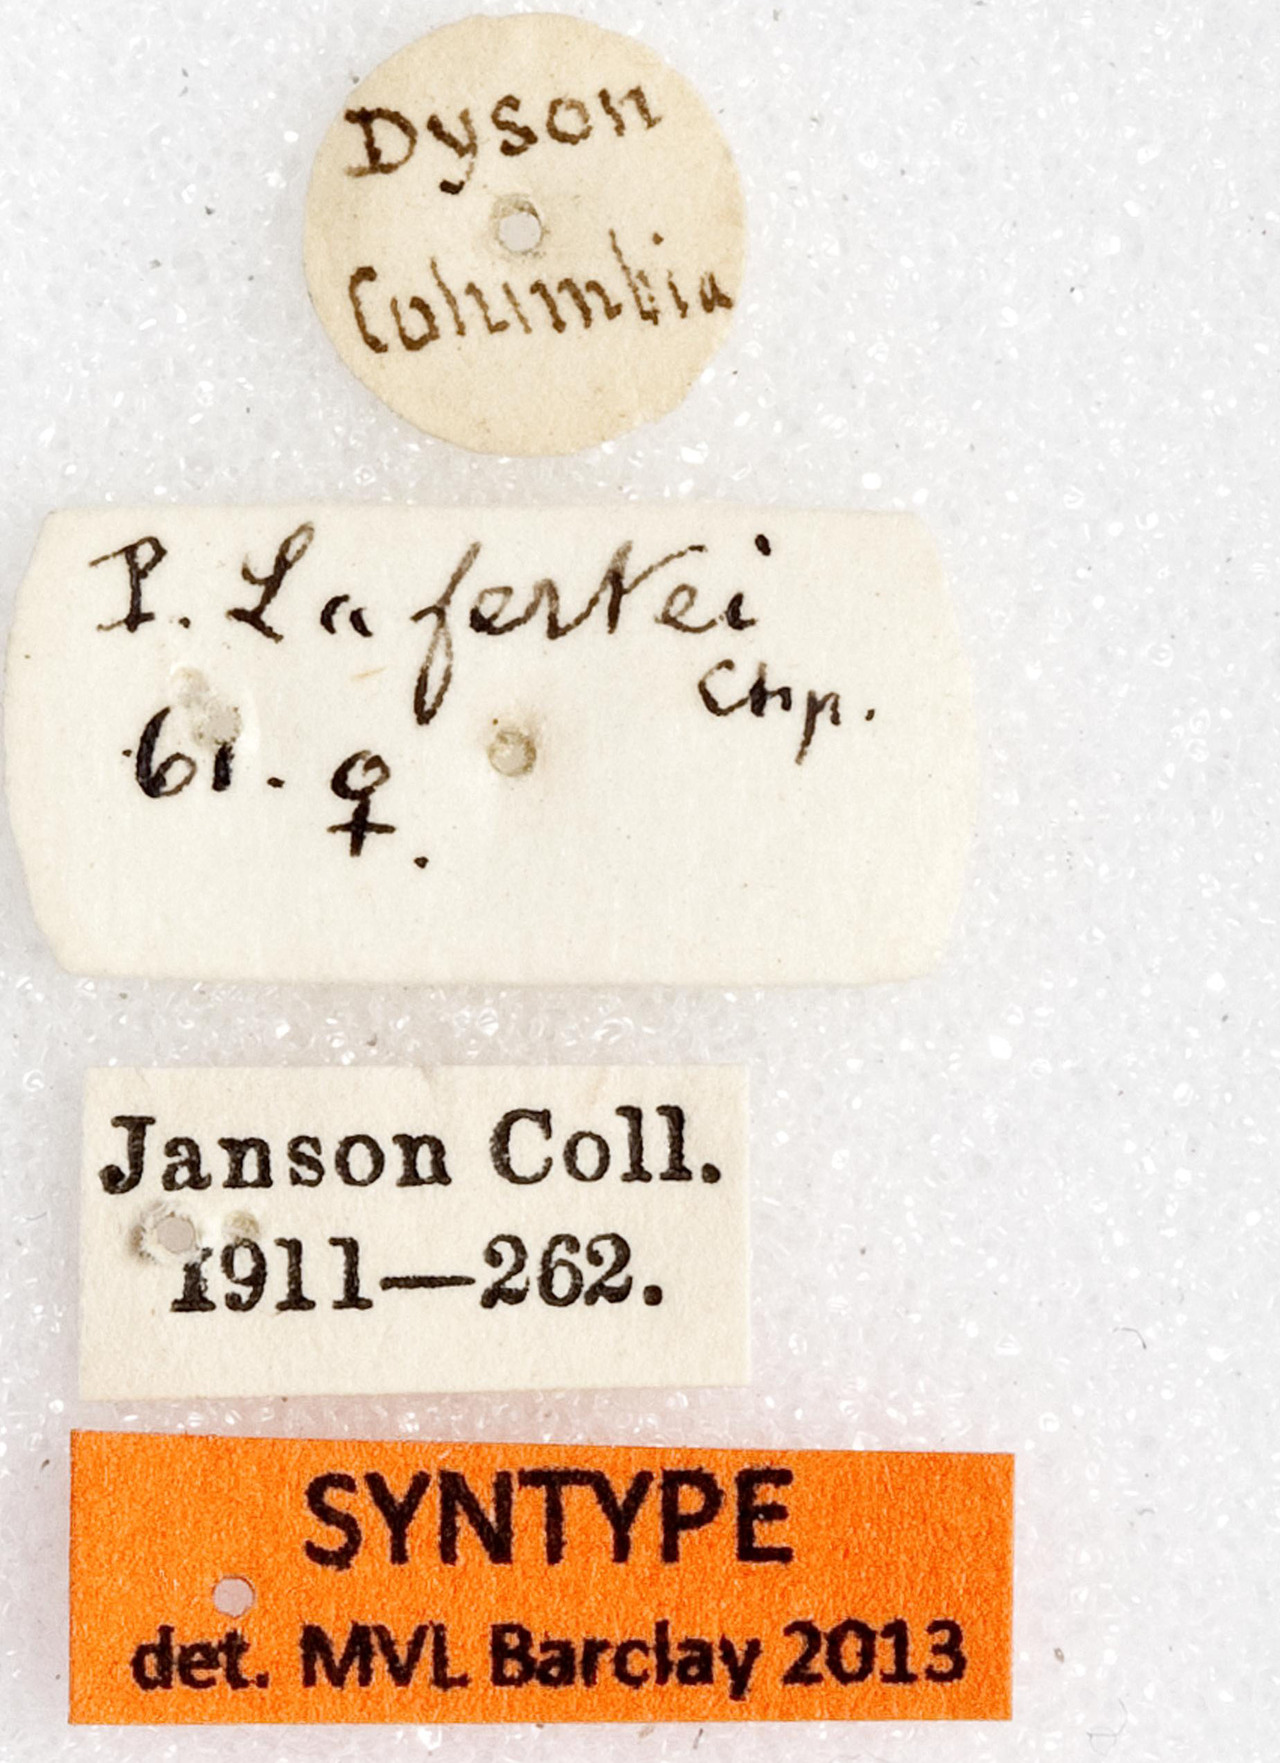 Dyson
Columbia
P. Lafertei
Chp.
61. ♀.
Janson Coll.
1911—262.
SYNTYPE
det. MVL Barclay 2013